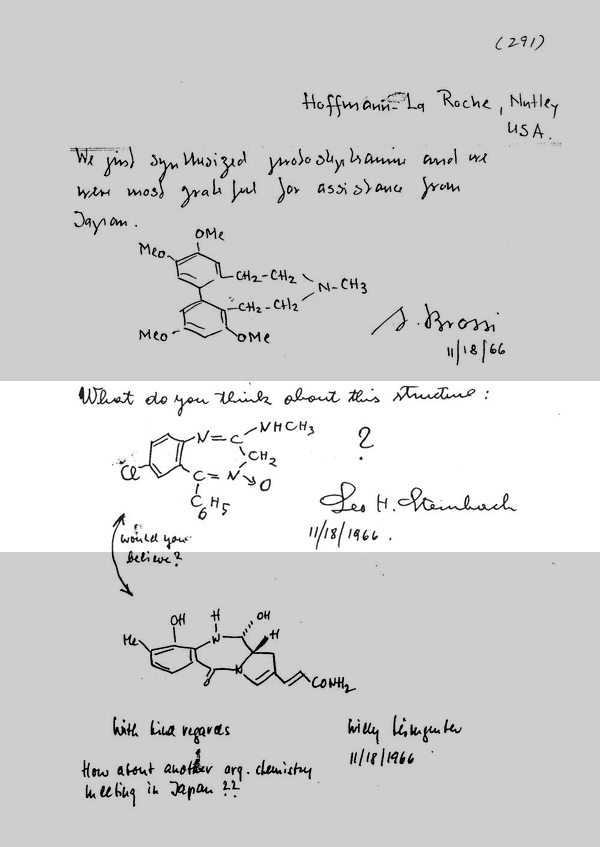 (291)
Hoffmann-La Roche, Nutley
USA.
We first synthesized protostephanine and we
were most grateful for assistance from
Japan.
OMe
MeO
CH2-CH2
N-CH3
CH2-CH2
MeO
OMe
A. Brossi
11/18/66
What do you think about this structure:
NHCH3
N=C
?
CH2
Cl
C=N→O
C6H5
Leo H. Sternbach
11/18/1966.
would you
believe?
OH
H
OH
Me
N
H
N
O
CONH2
With kind regards
Willy Leimgruber
11/18/1966
How about another org. chemistry
meeting in Japan ??